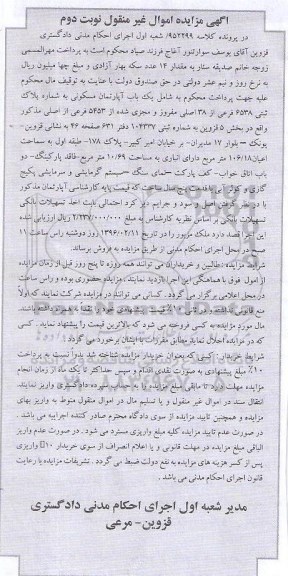 آگهی مزایده اموال غیر منقول نوبت دوم
در پرونده کلاسه ۹۵۲۲۹۹/ شعبه اول اجرای احکام مدنی دادگستری
قزوین آقای یوسف سوارتنور آقاخ فرزند صیاد محکوم است به پرداخت مهرالمسمی
زوجه خانم صدیقه ستار به مقدار ۱۴ عدد سکه بهار آزادی و مبلغ چهار میلیون ریال
به نرخ روز و نیم عشر دولتی در حق صندوق دولت با عنایت به توقیف مال محکوم
علیه جهت پرداخت محکوم به شامل یک باب آپارتمان مسکونی به شماره پلاک
ثبتی ۶۵۳۸ فرعی از ۳۸ اصلی مفروز و مجزی شده از ۵۴۵۳ فرعی از اصلی مذکور
واقع در بخش ۵ قزوین به شماره ثبتی ۱۰۴۳۳۷ دفتر ۶۳۱ صفحه ۴۶ به نشانی قزوین-
پونک – بلوار ۱۷ مدیران- بر خیابان امیر کبیر- پلاک ۱۷۸- طبقه اول به مساحت
اعیان۱۰۶/۱۸ متر مربع دارای انباری به مساحت ۱۰/۶۹ متر مربع -فاقد پارکینگ- دو
باب اتاق خواب- کف پارکت -نمای سنگ -سیستم گرمایشی و سرمایشی پکیج
گازی و کولر آبی با قدمت ساخت که قیمت پایه کارشناسی آپارتمان مذکور
با در نظر گرفتن اصل و سود و جرایم دیر کرد احتمالی بابت اخذ تسهیلات بانکی
تسهیلات بانکی بر اساس نظریه کارشناس به مبلغ ۲/۲۳۷/۰۰۰/۰۰۰ ریال ارزیابی شده
این اجرا قصد دارد ملک مزبور را در تاریخ ۱۳۹۶/۰۲/۱۱ روز دوشنبه راس ساعت ۱۱
صبح در محل اجرای احکام مدنی از طریق مزایده به فروش برساند.
شرایط مزایده :طالبین و خریداران می توانند همه روزه تا پنج روز قبل از زمان مزایده
از اموال فوق با هماهنگی این اجرا بازدید نمایند. مزایده حضوری بوده و راس ساعت
در محل اعلامی برگزار می گردد. کسانی می توانند در مزایده شرکت نمایند که اولاً
منع قانونی نداشته در ثانی ۱۰٪ قیمت پیشنهادی خود را به همراه داشته باشند.
مال مورد مزایده به کسی فروخته می شود که بالاترین قیمت را پیشنهاد نماید. کسی
که در مزایده اخلال نماید مطابق مقررات با ایشان برخورد می گردد.
شرایط خریدار: کسی که بعنوان خریدار مزایده شناخته شد بدواً نسبت به پرداخت
۱۰٪ مبلغ پیشنهادی به صورت نقدی اقدام و سپس حداکثر تا یک ماه از زمان انجام
مزایده مهلت دارد تا مابقی مبلغ مزایده را به حساب سپرده دادگستری واریز نمایند.
انتقال سند در اموال غیر منقول و یا تسلیم مال در اموال منقول منوط به واریز بهای
مزایده و همچنین تایید مزایده از سوی دادگاه محترم صادر کننده اجراییه می باشد.
در صورت عدم تایید مزایده کلیه مبلغ واریزی مسترد می شود. در صورت عدم واریز
الباقی مبلغ مزایده در مهلت قانونی و یا اعلام انصراف از سوی خریدار ۱۰٪ واریزی
پس از کسر هزینه های مزایده به نفع دولت ضبط می گردد. تشریفات مزایده با رعایت
قانون اجرای احکام مدنی می باشد.
مدیر شعبه اول اجرای احکام مدنی دادگستری
قزوین- مرعی